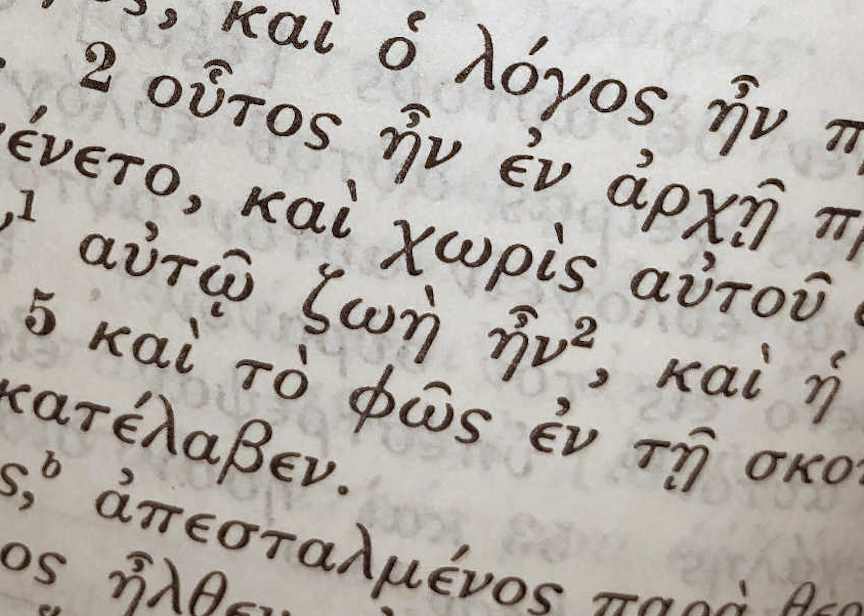 καὶ ὁ λόγος ἦν
2 οὗτος ἦν ἐν ἀρχῇ
καὶ χωρὶς αὐτοῦ
αὐτῷ ζωὴ ἦν², καὶ ἡ
5 καὶ τὸ φῶς ἐν τῇ
κατέλαβεν.
ἀπεσταλμένος παρὰ
ἦλθεν